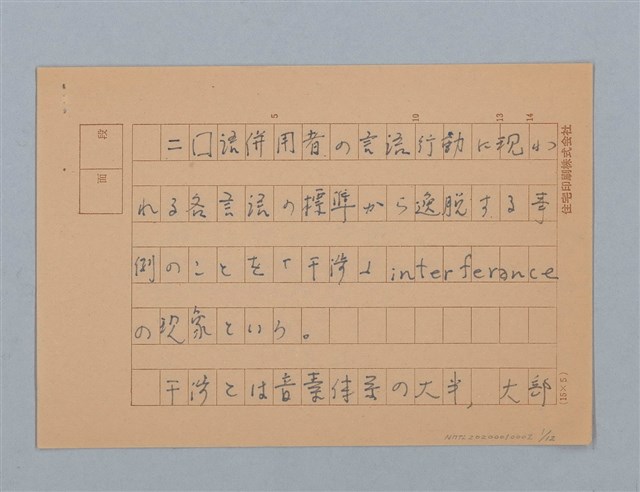 段
面
5
10
13
14
二口語併用者の言語行動に現わ
れる各言語の標準から逸脱する事
例のことを「干渉」interferance
の現象という。
干渉とは音素体系の大半,大部
住宅印刷株式会社
(15×5)
1/12